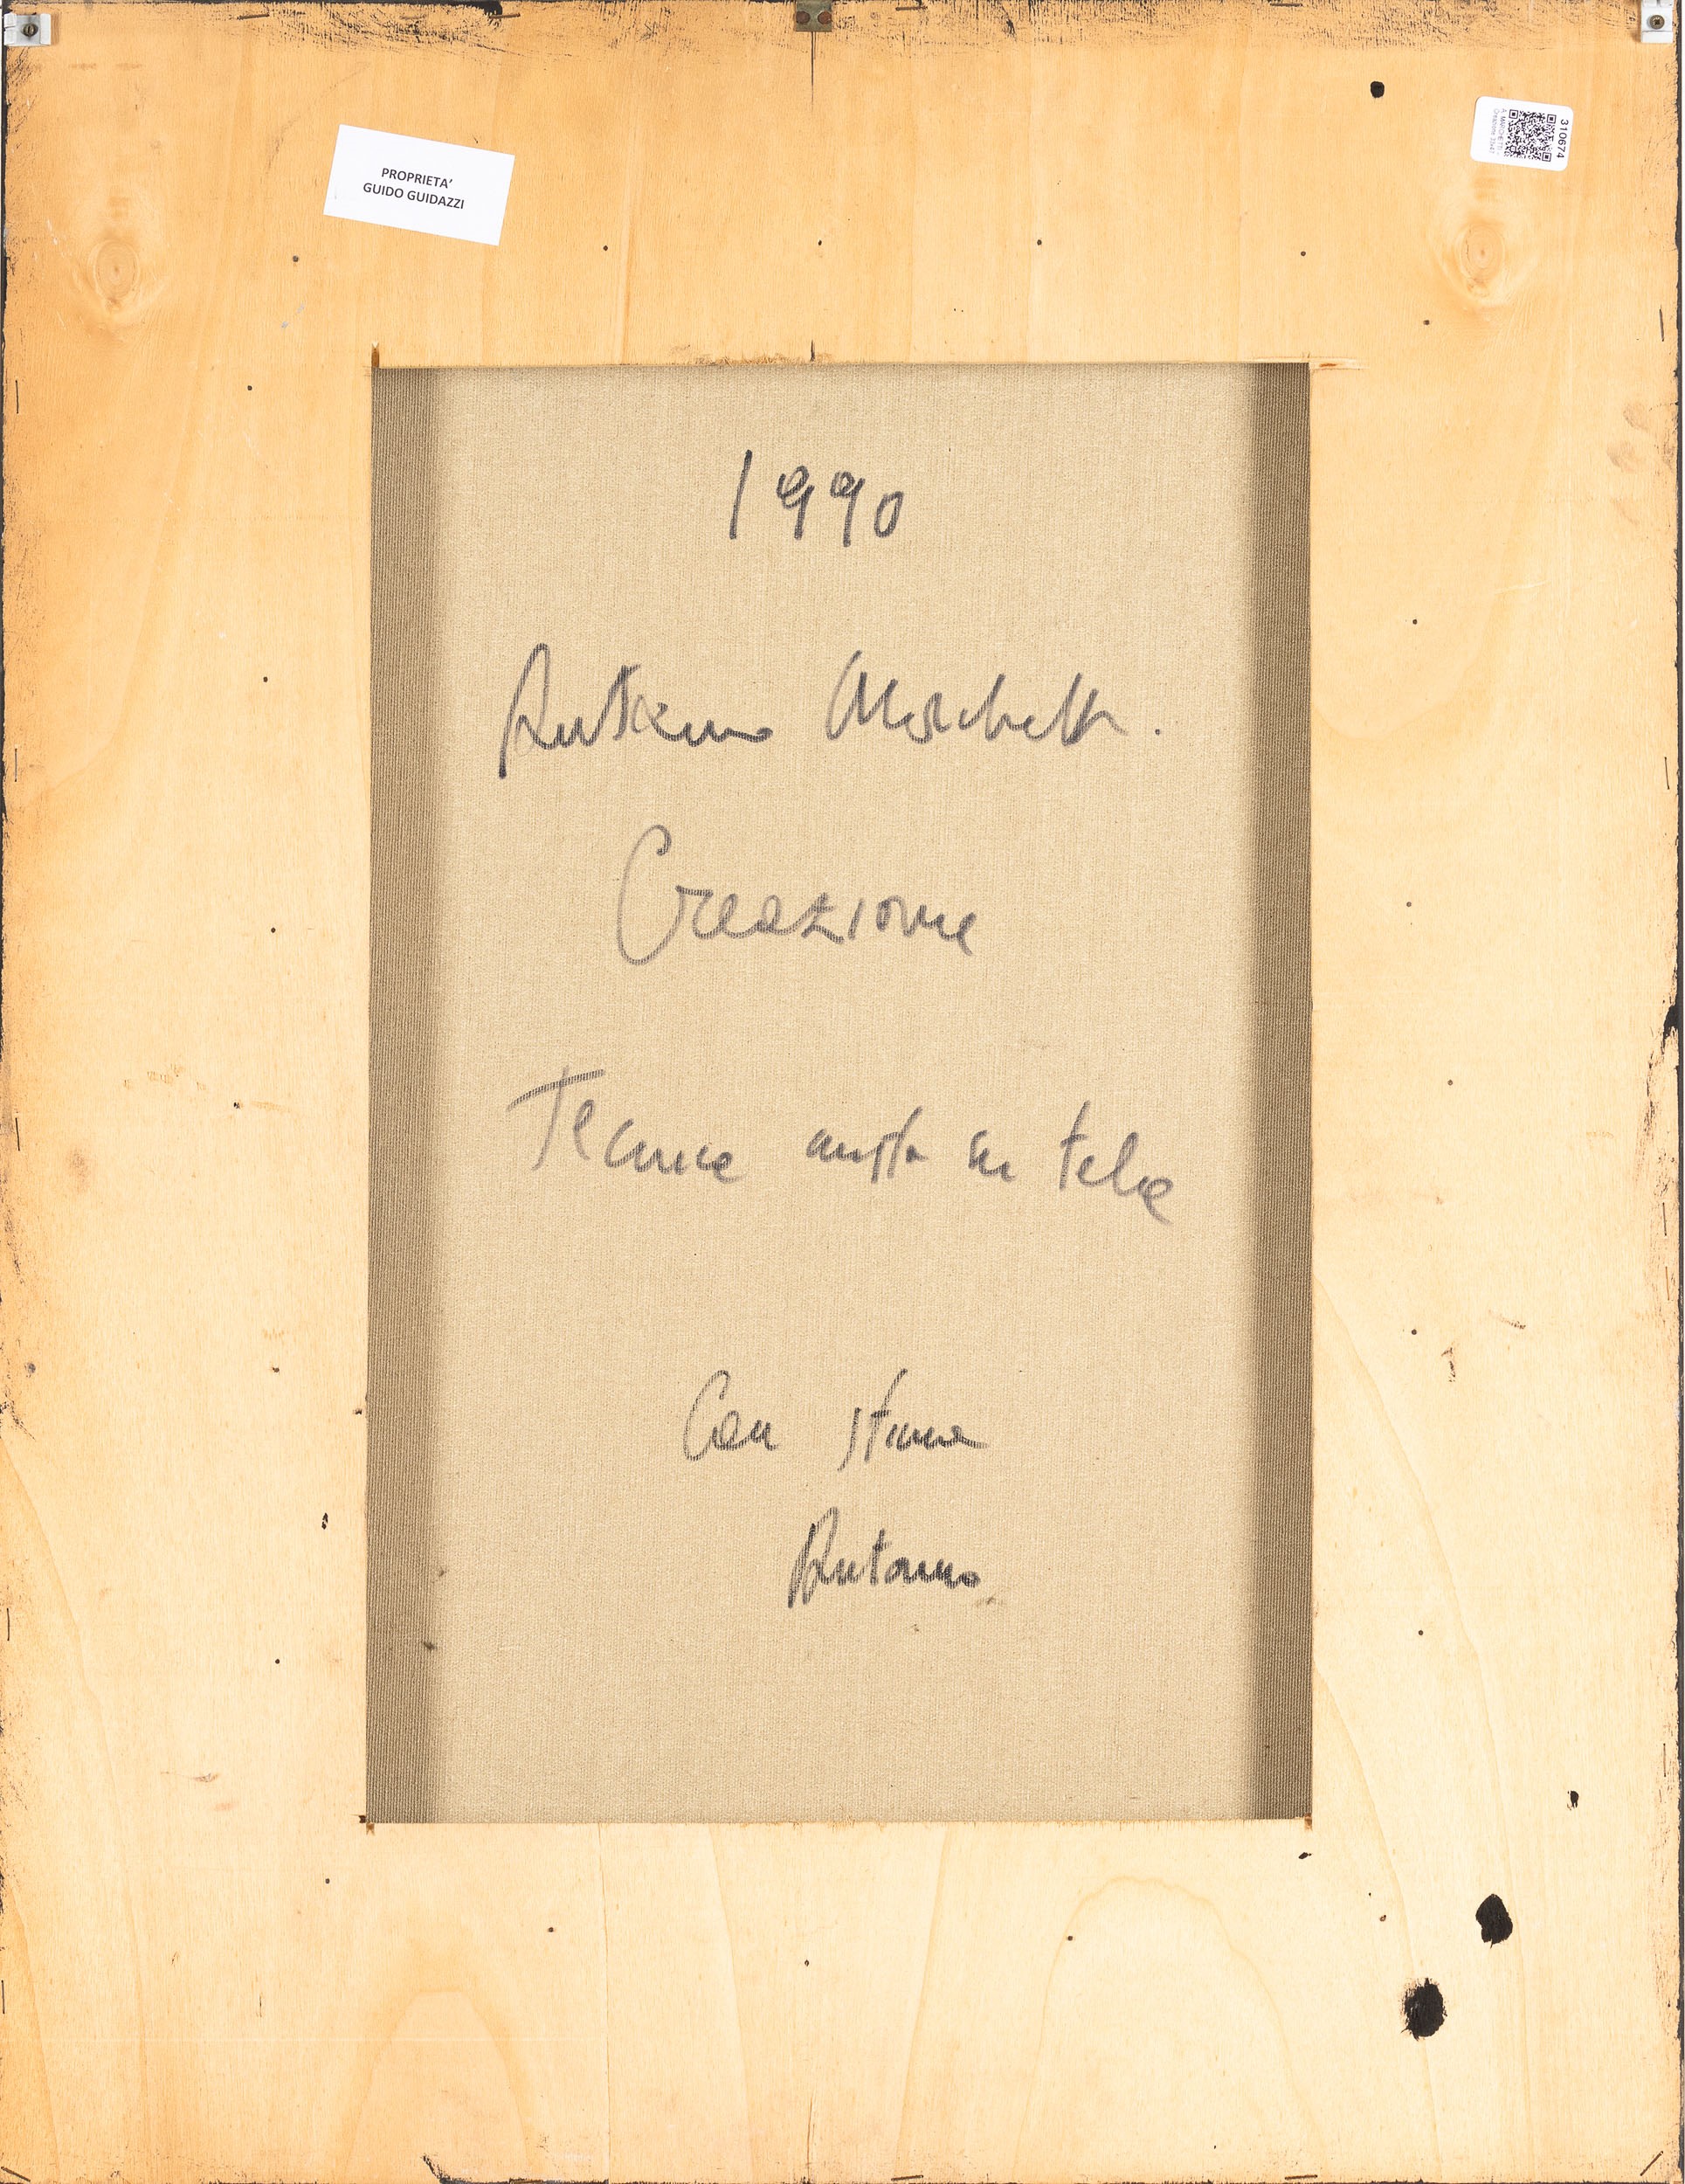 PROPRIETA'
GUIDO GUIDAZZI
310674
A. MARCHETTI -
1990
Antonio Marchetti.
Creazione
Tecnica mista su tela
Con stima
Antonio